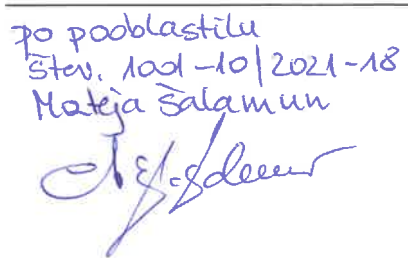 po pooblastilu
štev. 1001-10/2021-18
Mateja Šalamun